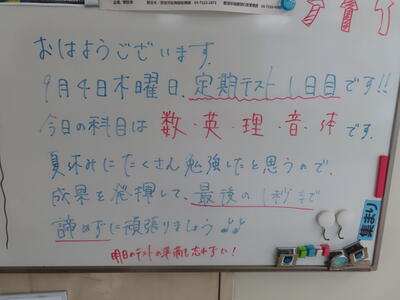 おはようございます.
9月4日木曜日、定期テスト1日目です!!
今日の科目は 数・英・理・音・体 です.
夏休みにたくさん勉強したと思うので、
成果を発揮して、最後の1秒まで
諦めずに頑張りましょう♪♪
明日のテストの準備も忘れずに!
集まり